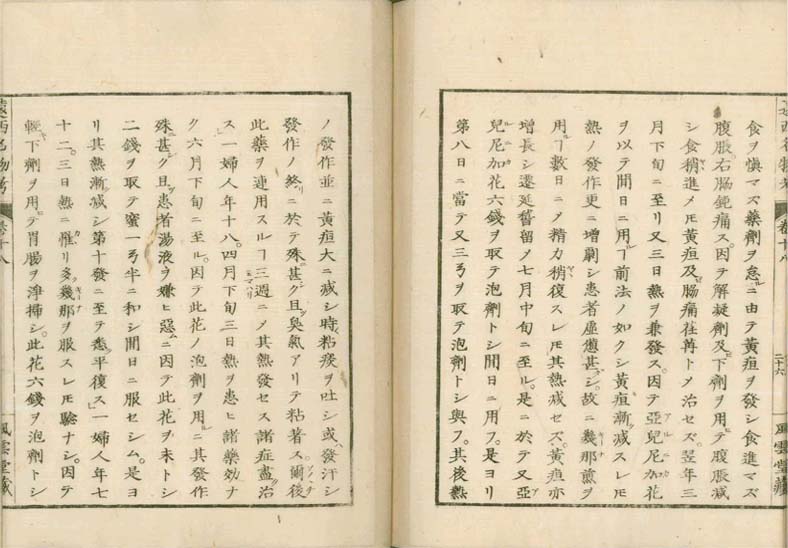 食ヲ愼マズ藥劑ヲ怠ルニ由テ黄疸ヲ發シ食進マズ
腹脹右腸鈍痛ス。因テ解凝劑及下劑ヲ用テ腹脹減
シ食稍進メモ黄疸及腸痛荏苒トメ治セズ。翌年三
月下旬ニ至リ又三日熱ヲ兼發ス。因テ亞兒尼加花
ヲ以テ間日ニ用ルヿ前法ノ如クシ黄疸漸ク減スレモ
熱ノ發作更ニ增劇シ患者虚憊甚シ。故ニ幾那煎ヲ
用ルヿ數日ニメ精力稍復スレモ其熱減セズ。黄疸亦
增長シ遷延畱留メ七月中旬ニ至ル。是ニ於テ又亞
兒尼加花六錢ヲ取テ泡劑トシ間日ニ用フ。是ヨリ
第八日ニ當テ又三弓ヲ取テ泡劑トシ與フ。其後熱
二十六
風雲堂藏
ノ發作並ニ黄疸大ニ減シ時々粘痰ヲ吐シ或ハ發汗シ
發作ノ終リニ於テ殊ニ甚ク且ツ臭氣アリテ粘著ス爾後
此藥ヲ連用スルヿ三週ニメ其熱發セス諸症盡ク治
ス一婦人年十八。四月下旬三日熱ヲ患ヒ諸藥効ナ
ク六月下旬ニ至ル。因テ此花ノ泡劑ヲ用ルニ其發作
殊ニ甚ク且ツ患者湯液ヲ嫌ヒ惡ムニ因テ此花ヲ末トシ
二錢ヲ取テ蜜一弓半ニ和シ間日ニ服セシム。是ヨ
リ其熱漸ク減シ第十發ニ至テ悉ク平復ス一婦人年七
十二。三日熱ニ罹リ多ク幾那ヲ服スレモ驗ナシ。因テ
輕キ下劑ヲ用テ胃腸ヲ淨掃シ。此花六錢ヲ泡劑トシ
風雲堂藏